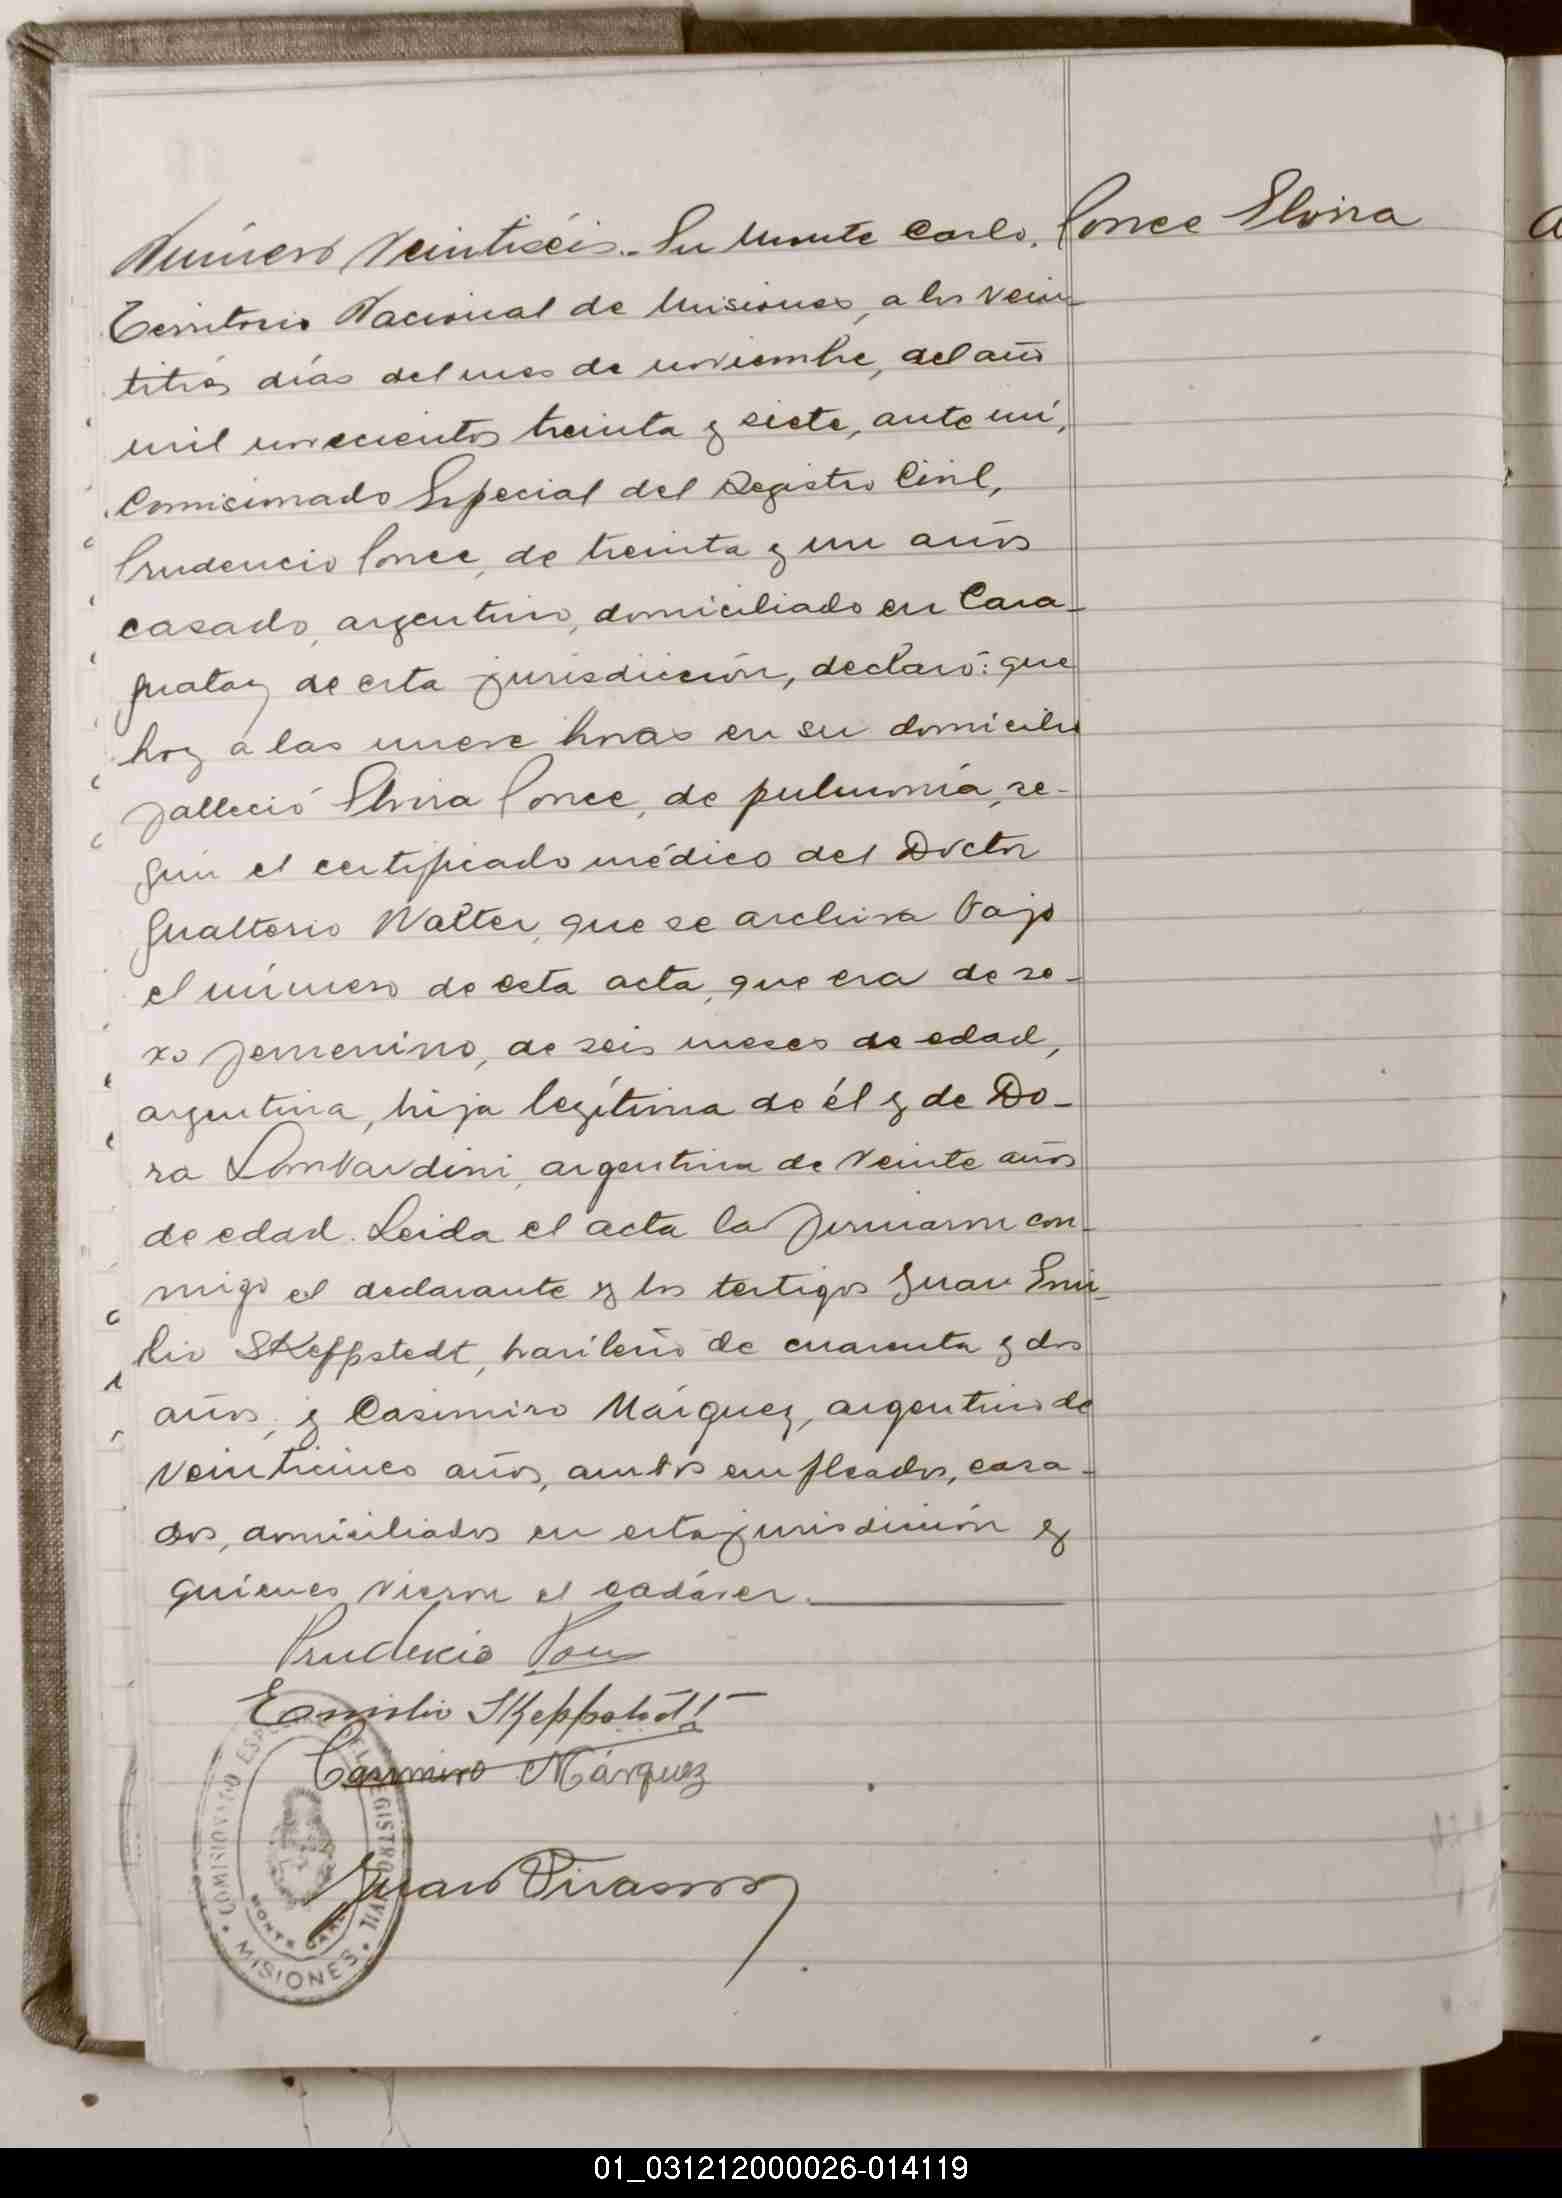 Número Veintiséis.- En Monte Carlo,
Ponce Elvira
Territorio Nacional de Misiones, a los vein-
titrés días del mes de noviembre, del año
mil novecientos treinta y siete, ante mí,
Comisionado Especial del Registro Civil,
Prudencio Ponce, de treinta y un años
casado, argentino, domiciliado en Cara-
guatay de esta jurisdicción, declaró: que
hoy a las nueve horas en su domicilio
falleció Elvira Ponce, de pulmonía, se-
gún el certificado médico del Doctor
Gualterio Walter, que se archiva bajo
el número de esta acta, que era de se-
xo femenino, de seis meses de edad,
argentina, hija legítima de él y de Do-
ra Lombardini, argentina de veinte años
de edad. Leida el acta la firmaron con-
migo el declarante y los testigos Juan Emi-
lio Skeppstedt, brasileño de cuarenta y dos
años, y Casimiro Márquez, argentino de
veinticinco años, ambos empleados, casa-
dos, domiciliados en esta jurisdicción y
quienes vieron el cadáver.
Prudencio Ponce
Emilio Skeppstedt
Casimiro Márquez
COMISIONADO ESPECIAL DEL REGISTRO CIVIL
MONTE CARLO
• MISIONES •
01_031212000026-014119